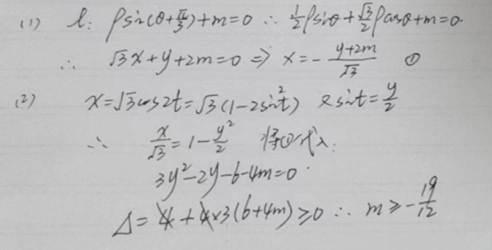 (1) l: ρsin(θ+π/3)+m=0 ∴ 1/2ρsinθ+√3/2ρcosθ+m=0
∴ √3x+y+2m=0 ⇒ x=-(y+2m)/√3 ①
(2) x=√3cos2t=√3(1-2sin²t) 又sint=y/2
∴ x/√3=1-y²/2 将①代入:
3y²-2y-6-4m=0
Δ=4+4×3(6+4m)≥0 ∴ m≥-19/12